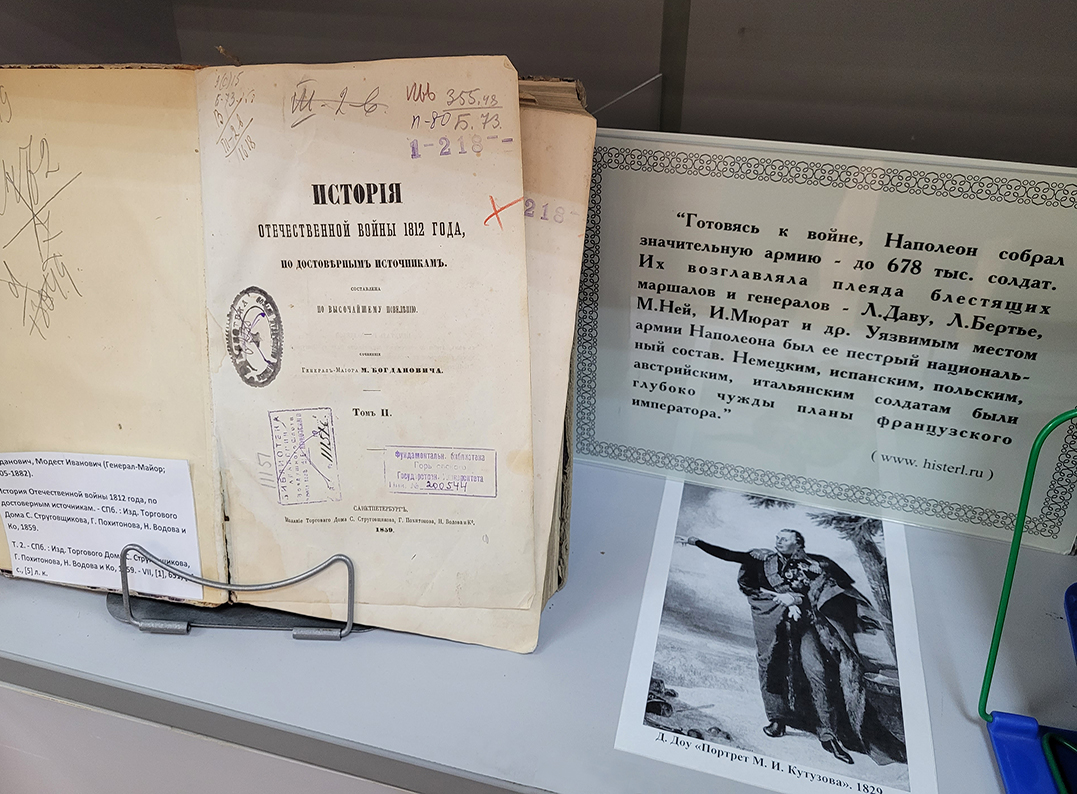 Ш-2 6
355.48
Б.73.
1-218--
218-
ИСТОРІЯ
ОТЕЧЕСТВЕННОЙ ВОЙНЫ 1812 ГОДА,
ПО ДОСТОВѢРНЫМЪ ИСТОЧНИКАМЪ.
СОСТАВЛЕНА
ПО ВЫСОЧАЙШЕМУ ПОВЕЛѢНІЮ.
СОЧИНЕНІЕ
Генералъ-Маіора М. БОГДАНОВИЧА.
Томъ II.
Фундаментальн. библиотека
Государствен. Университета
200544
САНКТПЕТЕРБУРГЪ.
Изданіе Торговаго Дома С. Струговщикова, Г. Похитонова, Н. Водова и Кº.
1859.
данович, Модест Иванович (Генерал-Майор;
05-1882).
стория Отечественной войны 1812 года, по
достоверным источникам. - СПб. : Изд. Торгового
Дома С. Струговщикова, Г. Похитонова, Н. Водова и
Ко, 1859.
Т. 2. - СПб. : Изд. Торгового Дома С. Струговщикова,
Г. Похитонова, Н. Водова и Ко, 1859. - VII, [1],
с., [5] л. к.
“Готовясь к войне, Наполеон собрал
значительную армию - до 678 тыс. солдат.
Их возглавляла плеяда блестящих
маршалов и генералов - Л.Даву, Л.Бертье,
М.Ней, И.Мюрат и др. Уязвимым местом
армии Наполеона был ее пестрый националь-
ный состав. Немецким, испанским, польским,
австрийским, итальянским солдатам были
глубоко чужды планы французского
императора.”
( www. histerl.ru )
Д. Доу «Портрет М. И. Кутузова». 1829